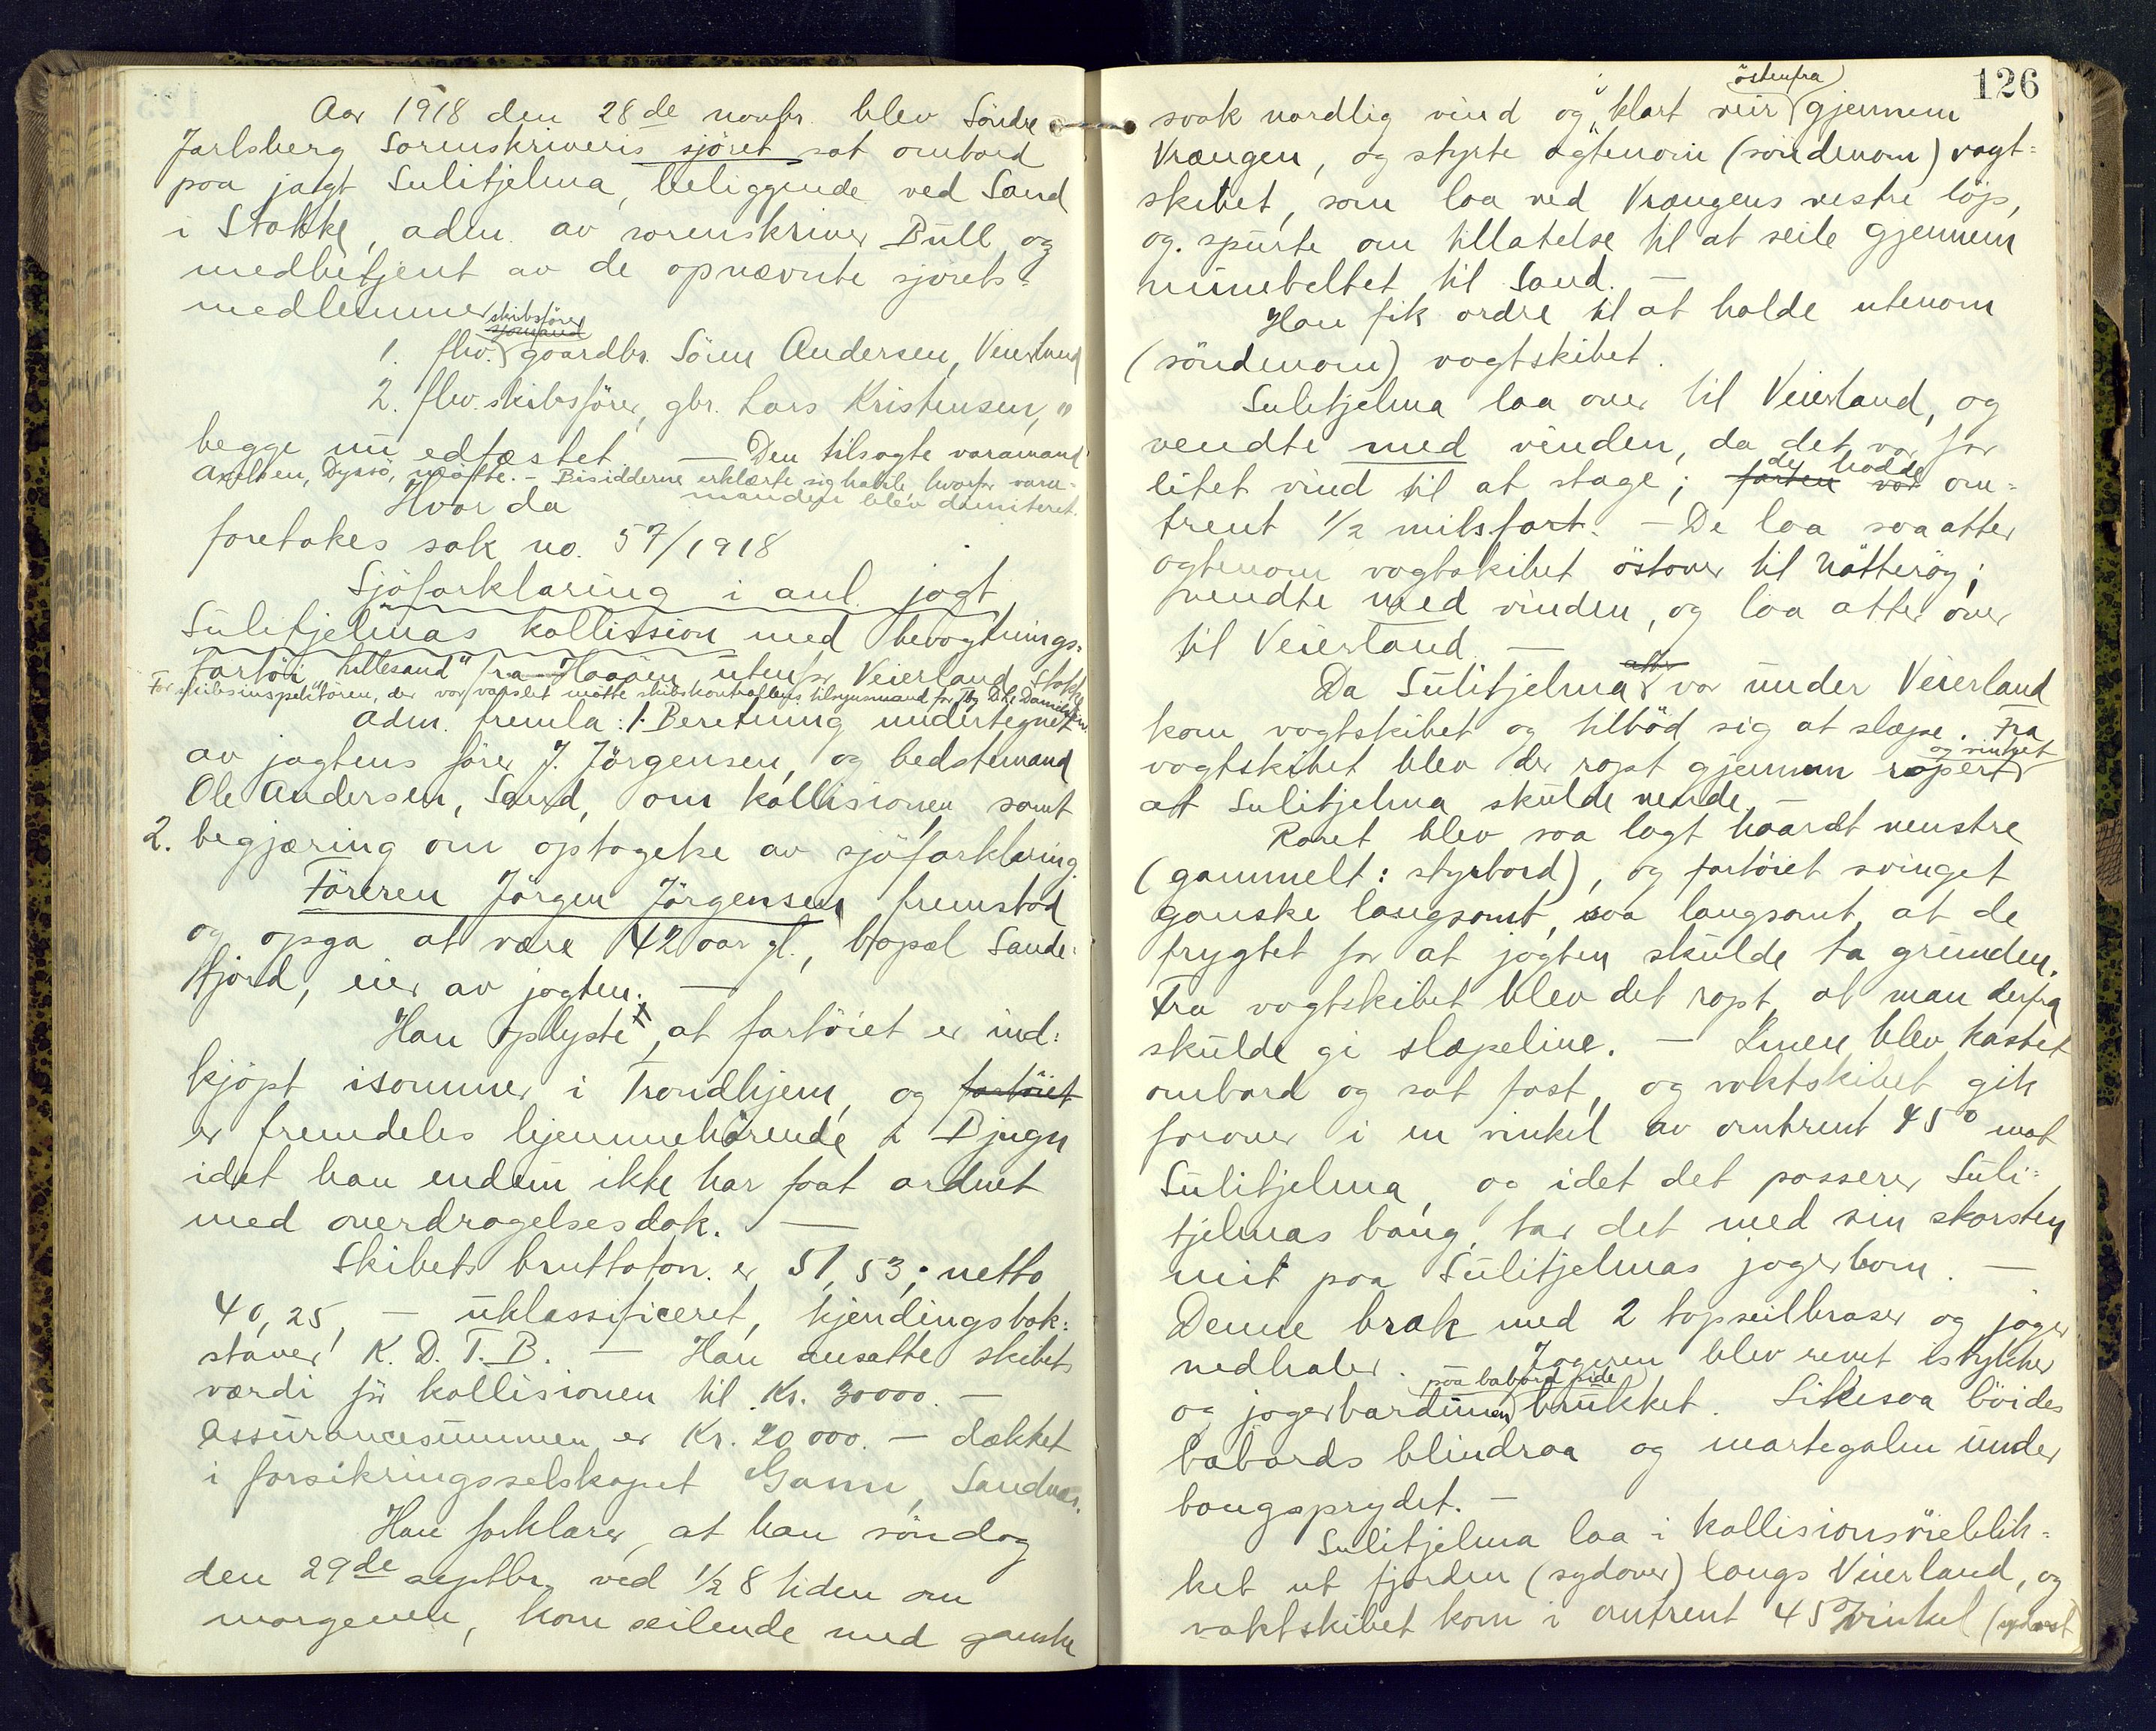 Aar 1918 den 28de novbr. blev Søndre
Jarlsberg Sorenskriveris sjøret sat ombord
paa jagt Sulitjelma, beliggende ved Sand
i Stokke, adm. av sorenskriver Bull og
medbetjent av de opnævnte sjørets-
medlemmer
skibsfører
1. fhv. gaardbr. Søren Andersen, Veierland
2. fhv. skibsfører, gbr. Lars Kristensen, "
begge nu edfæstet. — Den tilsagte varamand
Axelsen, Dyrsø, møtte. - Bisidderne erklærte sig habile hvorfor vara-
manden blev dimiteret.
Hvor da
foretakes sak no. 57/1918
Sjøforklaring i anl. jagt
Sulitjelmas kollission med bevogtnings-
fartøi "Lillesand" fra Haaøen utenfor Veierland, Stokke
For skibsinspektøren, der var varslet møtte skibskontrollens tilsynsmand for Tbg Dkt Danielsen.
Adm. fremla: 1. Beretning undertegnet
av jagtens fører J. Jørgensen, og bedstemand
Ole Andersen, Sand, om kollisionen samt
2. begjæring om optagelse av sjøforklaring.
Føreren Jørgen Jørgensen fremstod
og opga at være 42 aar gl., bopæl Sande-
fjord, eier av jagten. —
Han oplyste, at fartøiet er ind-
kjøpt isommer i Trondhjem, og fartøiet
er fremdeles hjemmehørende i Bjugn
idet han endnu ikke har faat ordnet
med overdragelsesdok. —
Skibets bruttoton. er 51,53; netto
40,25, — uklassificeret, kjendingsbok-
staver K. D. T. B. — Han ansatte skibets
værdi før kollisionen til Kr. 30000. —
Assurancesummen er Kr. 20 000. — dækket
i forsikringsselskapet Gann, Sandnes.
Han forklarer, at han søndag
den 29de septbr. ved 1/2 8 tiden om
morgenen, kom seilende med ganske
126
østenfra
svak nordlig vind og klart veir gjennem
Vrængen, og styrte agtenom (søndenom) vagt-
skibet, som laa ved Vrængens vestre løp,
og spurte om tillatelse til at seile gjennem
minebeltet til Sand. —
Han fik ordre til at holde utenom
(søndenom) vogtskibet.
Sulitjelma laa over til Veierland, og
vendte med vinden, da det var for
de hadde
litet vind til at stage; farten var om-
trent 1/2 milsfart. — De laa saa atter
agtenom vogtskibet østover til Nøtterøy;
vendte med vinden, og laa atter over
til Veierland. —
atter
Da Sulitjelma var under Veierland
kom vogtskibet og tilbød sig at slæpe. Fra
og vinket
vogtskibet blev der ropt gjennem ropert
at Sulitjelma skulde vende. —
Roret blev saa lagt haardt venstre
(gammelt: styrbord), og fartøiet svinget
ganske langsomt, saa langsomt, at de
frygtet for at jagten skulde ta grunden.
Fra vogtskibet blev det ropt, at man derfra
skulde gi slæpeline. — Linen blev kastet
ombord og sat fast, og vaktskibet gik
forover i en vinkel av omtrent 45° mot
Sulitjelma, og idet det passerer Suli-
tjelmas boug, tar det med sin skorsten
mit paa Sulitjelmas jagerbom. —
Denne brak med 2 topseilbraser og jager
nedhaler. Jageren blev revet istykker
paa babord side
og jagerbardunen brukket. Likesaa bøides
babords blindraa og martegalen under
bougsprydet. —
Sulitjelma laa i kollisionsøieblik-
ket ut fjorden (sydover) langs Veierland, og
vaktskibet kom i omtrent 45° vinkel (sydvest